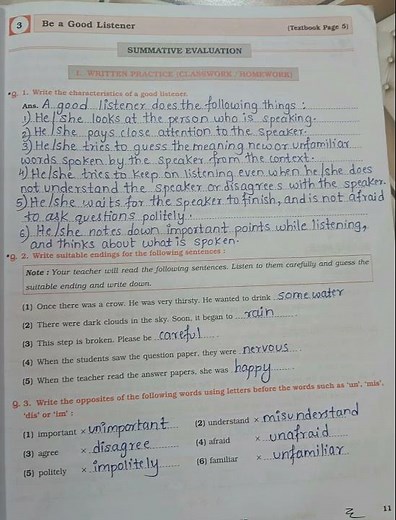 3 Be a Good Listener (Textbook Page 5)
SUMMATIVE EVALUATION
1. WRITTEN PRACTICE (CLASSWORK / HOMEWORK)
•Q. 1. Write the characteristics of a good listener.
Ans. A good listener does the following things :
1) He/she looks at the person who is speaking.
2) He/she pays close attention to the speaker.
3) He/she tries to guess the meaning new or unfamiliar
words spoken by the speaker from the context.
4) He/she tries to keep on listening even when he/she does
not understand the speaker or disagrees with the speaker.
5) He/she waits for the speaker to finish, and is not afraid
to ask questions politely.
6) He/she notes down important points while listening,
and thinks about what is spoken.
•Q. 2. Write suitable endings for the following sentences :
Note : Your teacher will read the following sentences. Listen to them carefully and guess the
suitable ending and write down.
(1) Once there was a crow. He was very thirsty. He wanted to drink some water
(2) There were dark clouds in the sky. Soon, it began to rain
(3) This step is broken. Please be careful
(4) When the students saw the question paper, they were nervous
(5) When the teacher read the answer papers, she was happy
Q. 3. Write the opposites of the following words using letters before the words such as 'un', 'mis',
'dis' or 'im' :
(1) important × unimportant (2) understand × misunderstand
(3) agree × disagree (4) afraid × unafraid
(5) politely × impolitely (6) familiar × unfamiliar
11